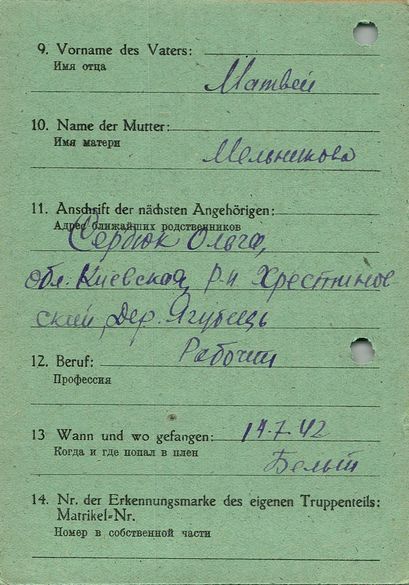 9. Vorname des Vaters:
Имя отца
Матвей
10. Name der Mutter:
Имя матери
Мельникова
11. Anschrift der nächsten Angehörigen:
Адрес ближайших родственников
Сердюк Ольга,
обл. Киевская, р-н Хрестинов-
ский, Дер. Ягубець
12. Beruf:
Рабочий
Профессия
13 Wann und wo gefangen: 14.7.42
Когда и где попал в плен
14. Nr. der Erkennungsmarke des eigenen Truppenteils:
Matrikel-Nr.
Номер в собственной части